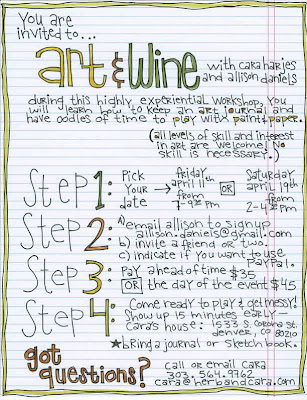 You are
invited to...
art & wine
with cara harjes
and allison daniels
during this highly experiential workshop, you
will learn how to keep an art journal and
have oodles of time to play with paint & paper.
(all levels of skill and interest
in art are welcome! No
skill is necessary.)
Step 1: Pick your date → friday april 11th from 7-9:30 pm [OR] Saturday april 19th from 2-4:30 pm
Step 2: a) email allison to sign up
allison.daniels@gmail.com
b) invite a friend or two.
c) indicate if you want to use
paypal.
Step 3: Pay ahead of time $35
[OR] the day of the event $45
Step 4: Come ready to play & get messy!
Show up 15 minutes early—
Cara's house: 1533 S. Corona St.
denver, CO 80210
★ bring a journal or sketch book.
got
questions?
call or email Cara
303.564.9962
cara@herbandcara.com